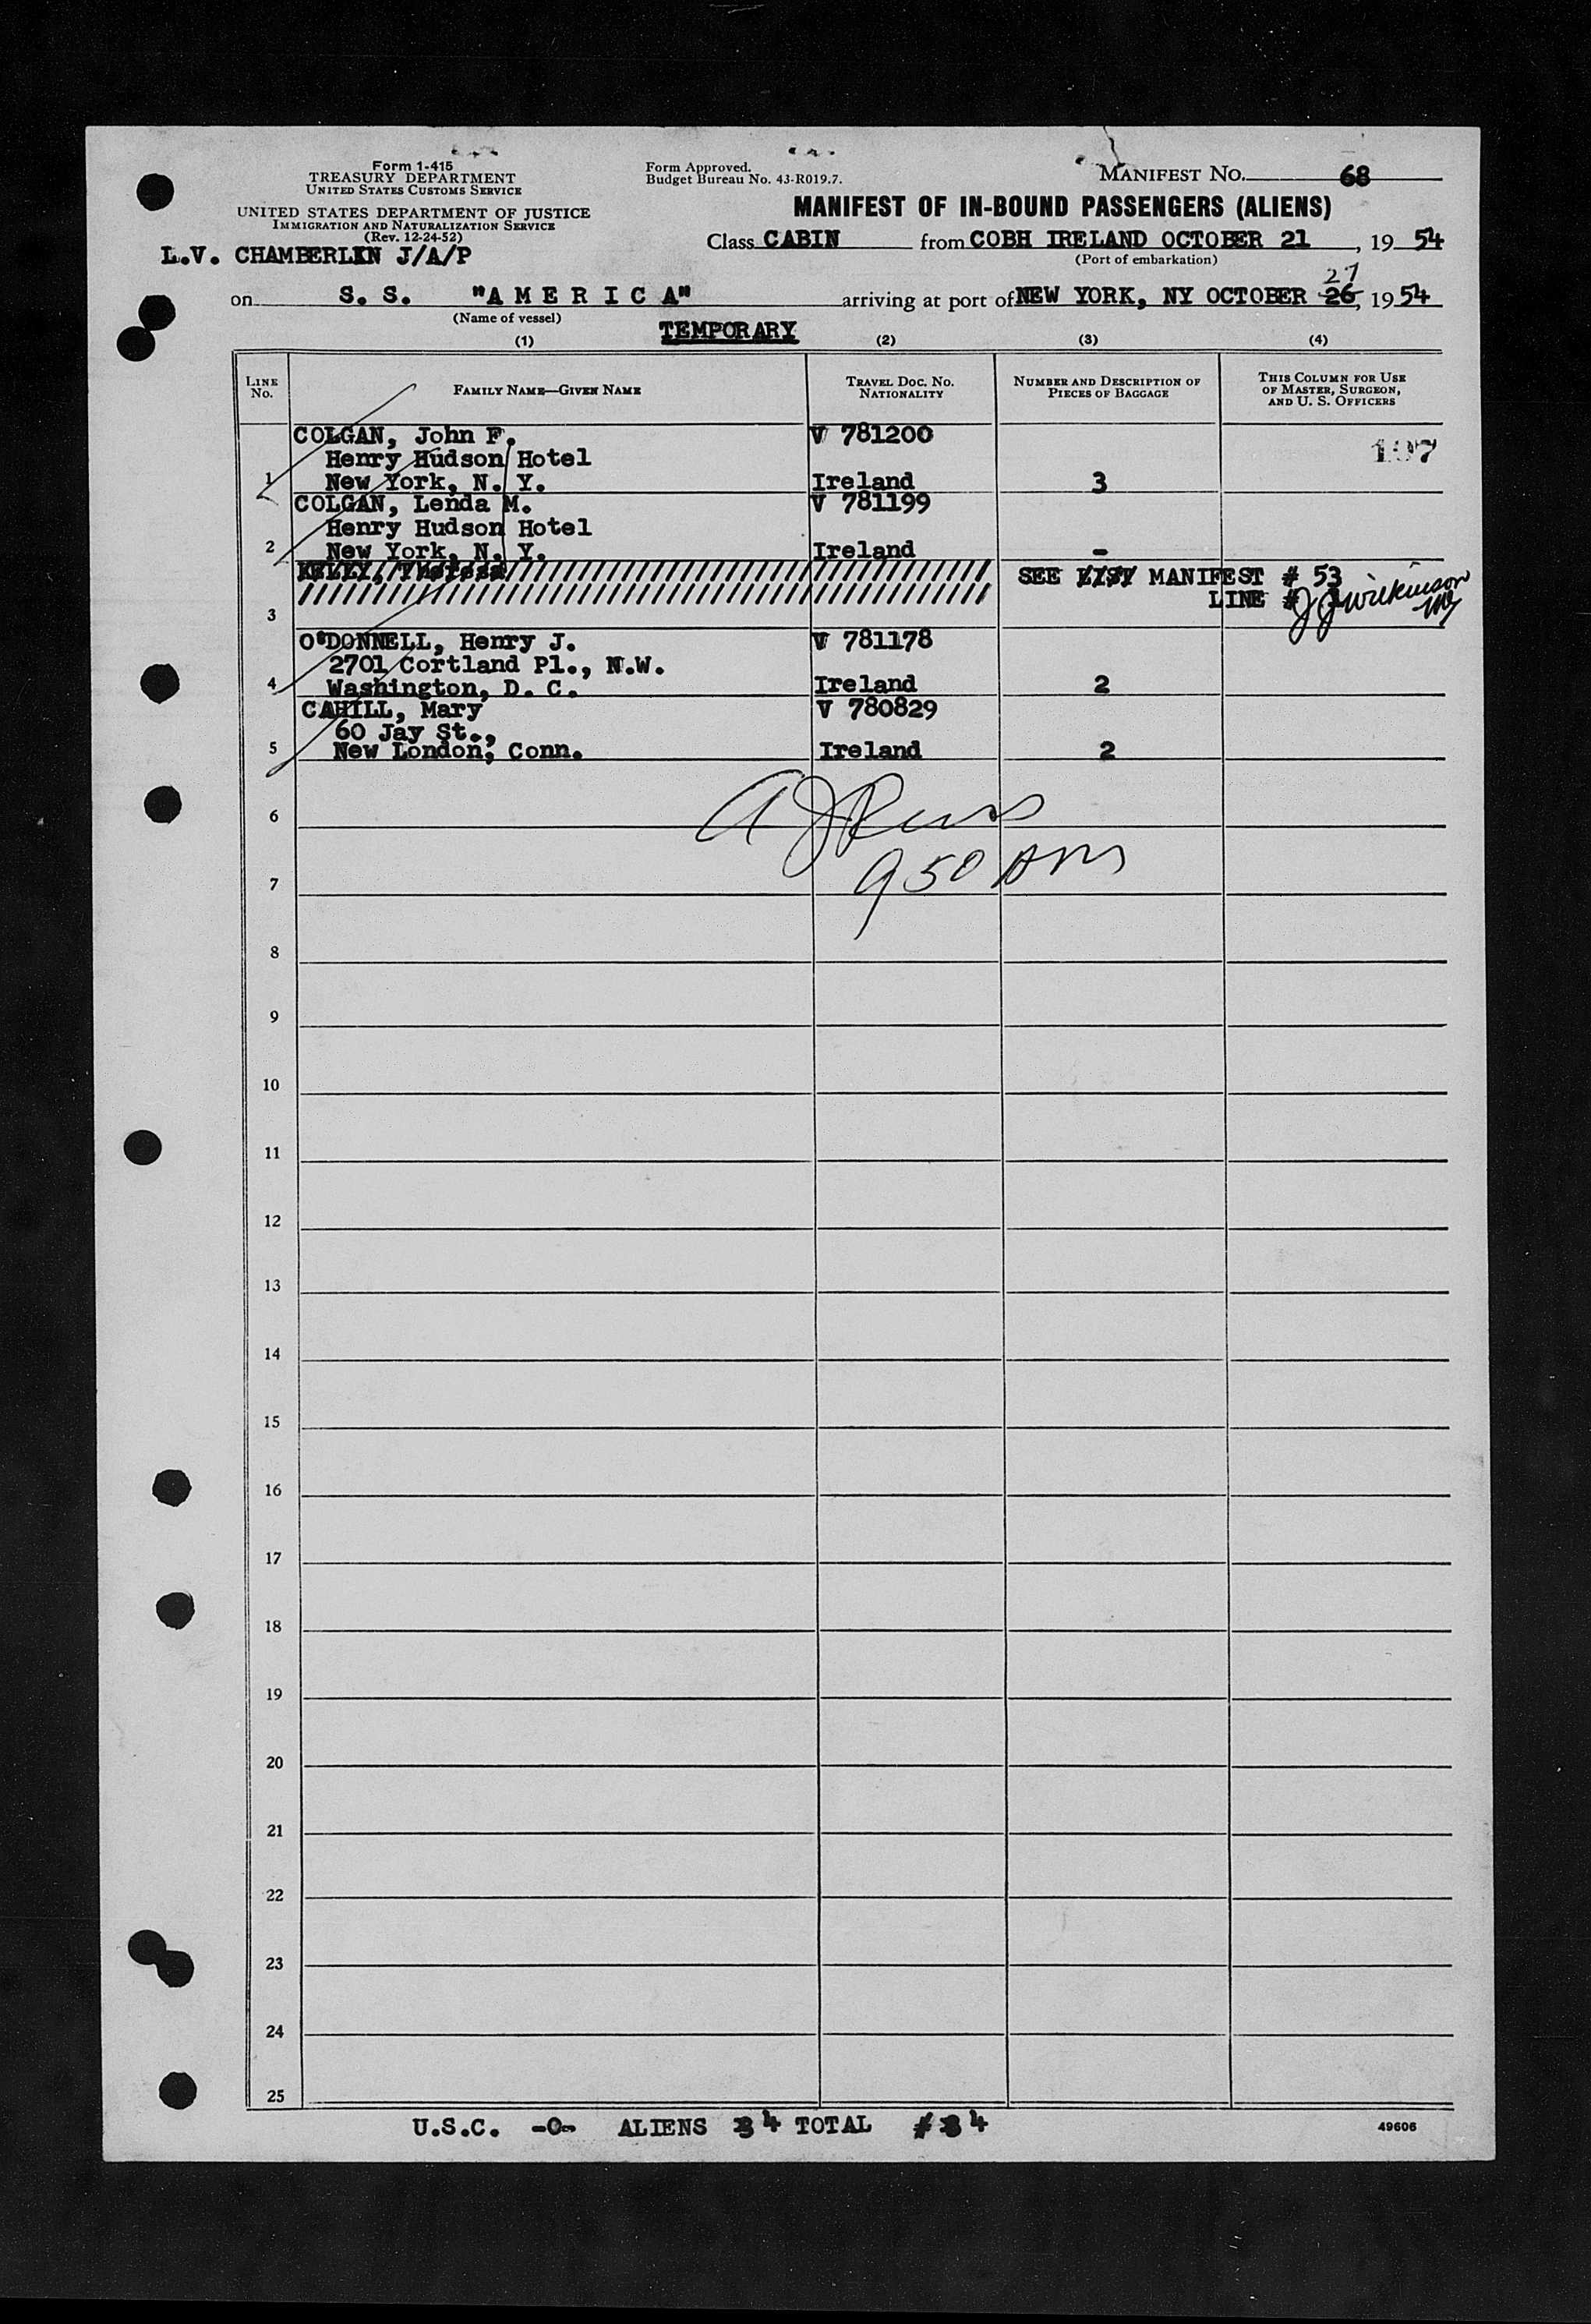 Form 1-415
TREASURY DEPARTMENT
UNITED STATES CUSTOMS SERVICE
UNITED STATES DEPARTMENT OF JUSTICE
IMMIGRATION AND NATURALIZATION SERVICE
(Rev. 12-24-52)
L.V. CHAMBERLIN J/A/P
Form Approved.
Budget Bureau No. 43-R019.7.
MANIFEST NO. 68
MANIFEST OF IN-BOUND PASSENGERS (ALIENS)
Class CABIN from COBH IRELAND OCTOBER 21, 19 54
(Port of embarkation)
27
on S. S. "A M E R I C A" arriving at port of NEW YORK, NY OCTOBER 26, 19 54
(Name of vessel)
TEMPORARY
(1) (2) (3) (4)
LINE No. FAMILY NAME—GIVEN NAME TRAVEL DOC. NO. NATIONALITY NUMBER AND DESCRIPTION OF PIECES OF BAGGAGE THIS COLUMN FOR USE OF MASTER, SURGEON, AND U. S. OFFICERS
COLGAN, John F. V 781200
Henry Hudson Hotel 107
1 New York, N. Y. Ireland 3
COLGAN, Lenda M. V 781199
Henry Hudson Hotel
2 New York, N. Y. Ireland -
KELLY, Theresa SEE LIST MANIFEST # 53
LINE #
3 JJWilkinson
O'DONNELL, Henry J. V 781178
2701 Cortland Pl., N.W.
4 Washington, D. C. Ireland 2
CAHILL, Mary V 780829
60 Jay St.,
5 New London, Conn. Ireland 2
6
950 AM
7
8
9
10
11
12
13
14
15
16
17
18
19
20
21
22
23
24
25
U.S.C. -0- ALIENS 3 4 TOTAL #3 4
49606